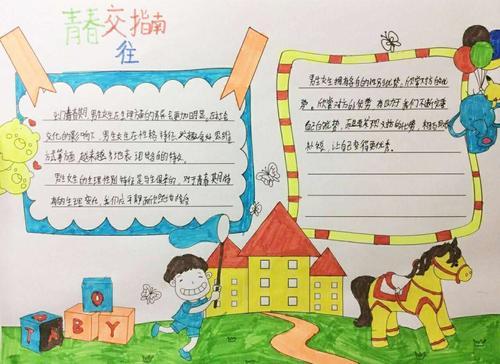 青春交指南
往
到了青春期,男生女生在生理方面的差异会更加明显。
文化的影响下,男生女生在性格特征、兴趣爱好、思维
方式等方面,越来越多地表现出各自的特点。
男生女生的生理性别特征是与生俱来的,对于青春期
的生理变化,我们应平静而欣然地
男生女生拥有各自的性别优势。欣赏对方的优
势,欣赏对方的优势,有助于我们不断完善
自己的优势,而且要发现对方的优势,相互
补短,让自己变得更优秀。
T
O
A
B
Y